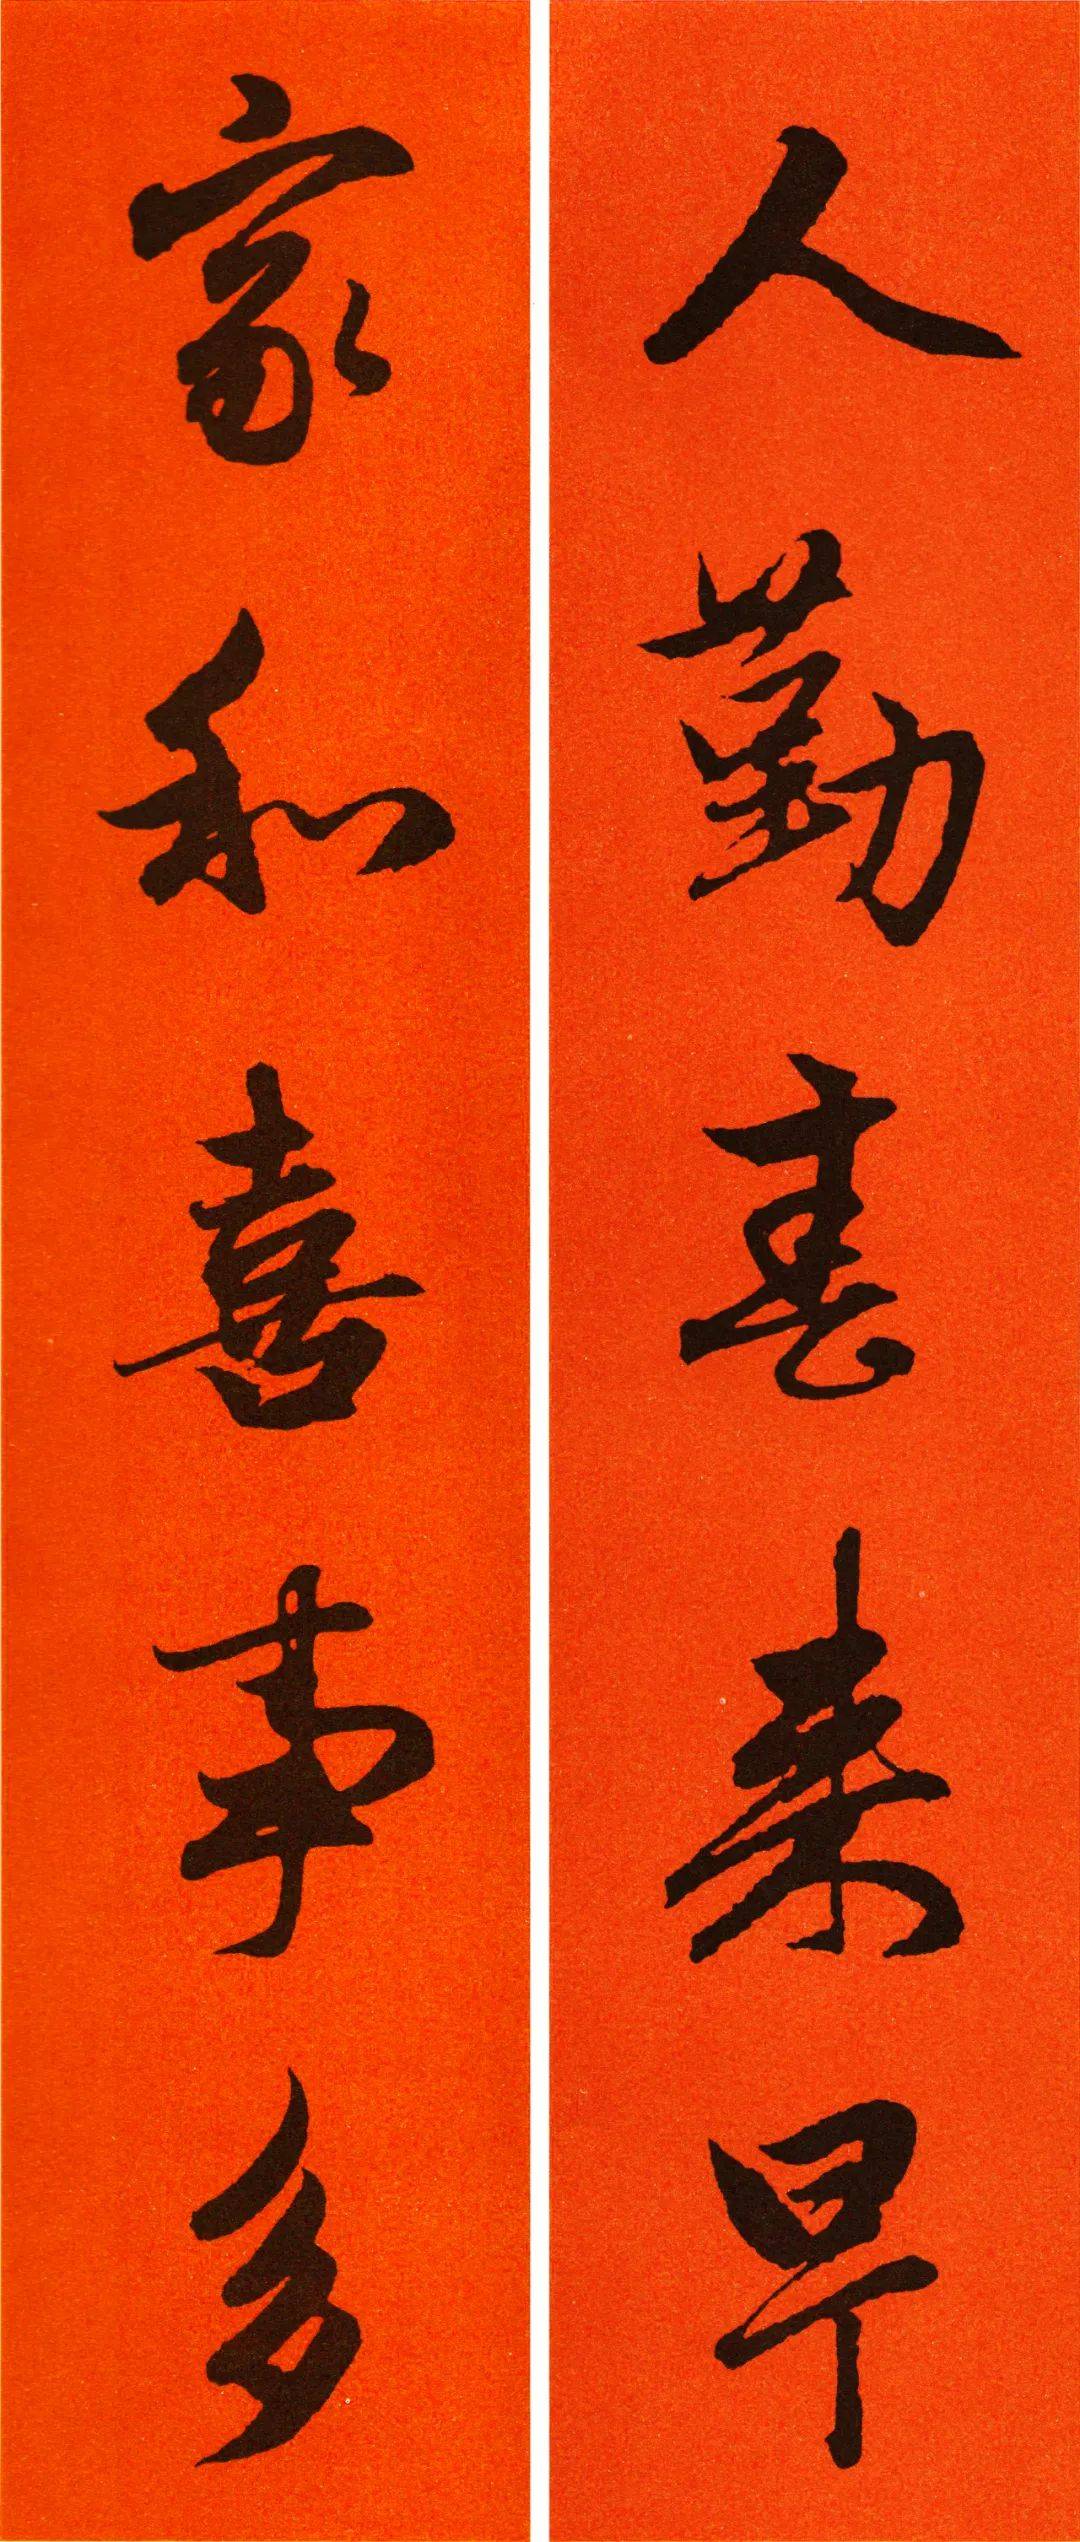 人勤春来早
家和喜事多